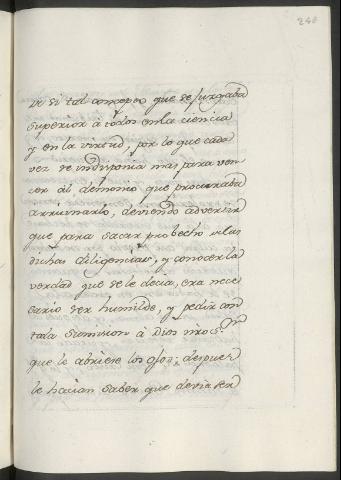 248
De si tal concepto que se jusgaba
superior à todos en la ciencia
y en la virtud, por lo que cada
vez se indisponia mas para ven
cer al demonio que procuraba
arruinarlo, deviendo advertir
que para sacar probecho delas
dichas diligencias, y conocer la
verdad que se le decia, era nece
sario ser humilde, y pedir con
tala sumision à Dios nro S.or
que le abriese los ojos; despues
le hacian saber que devia ser